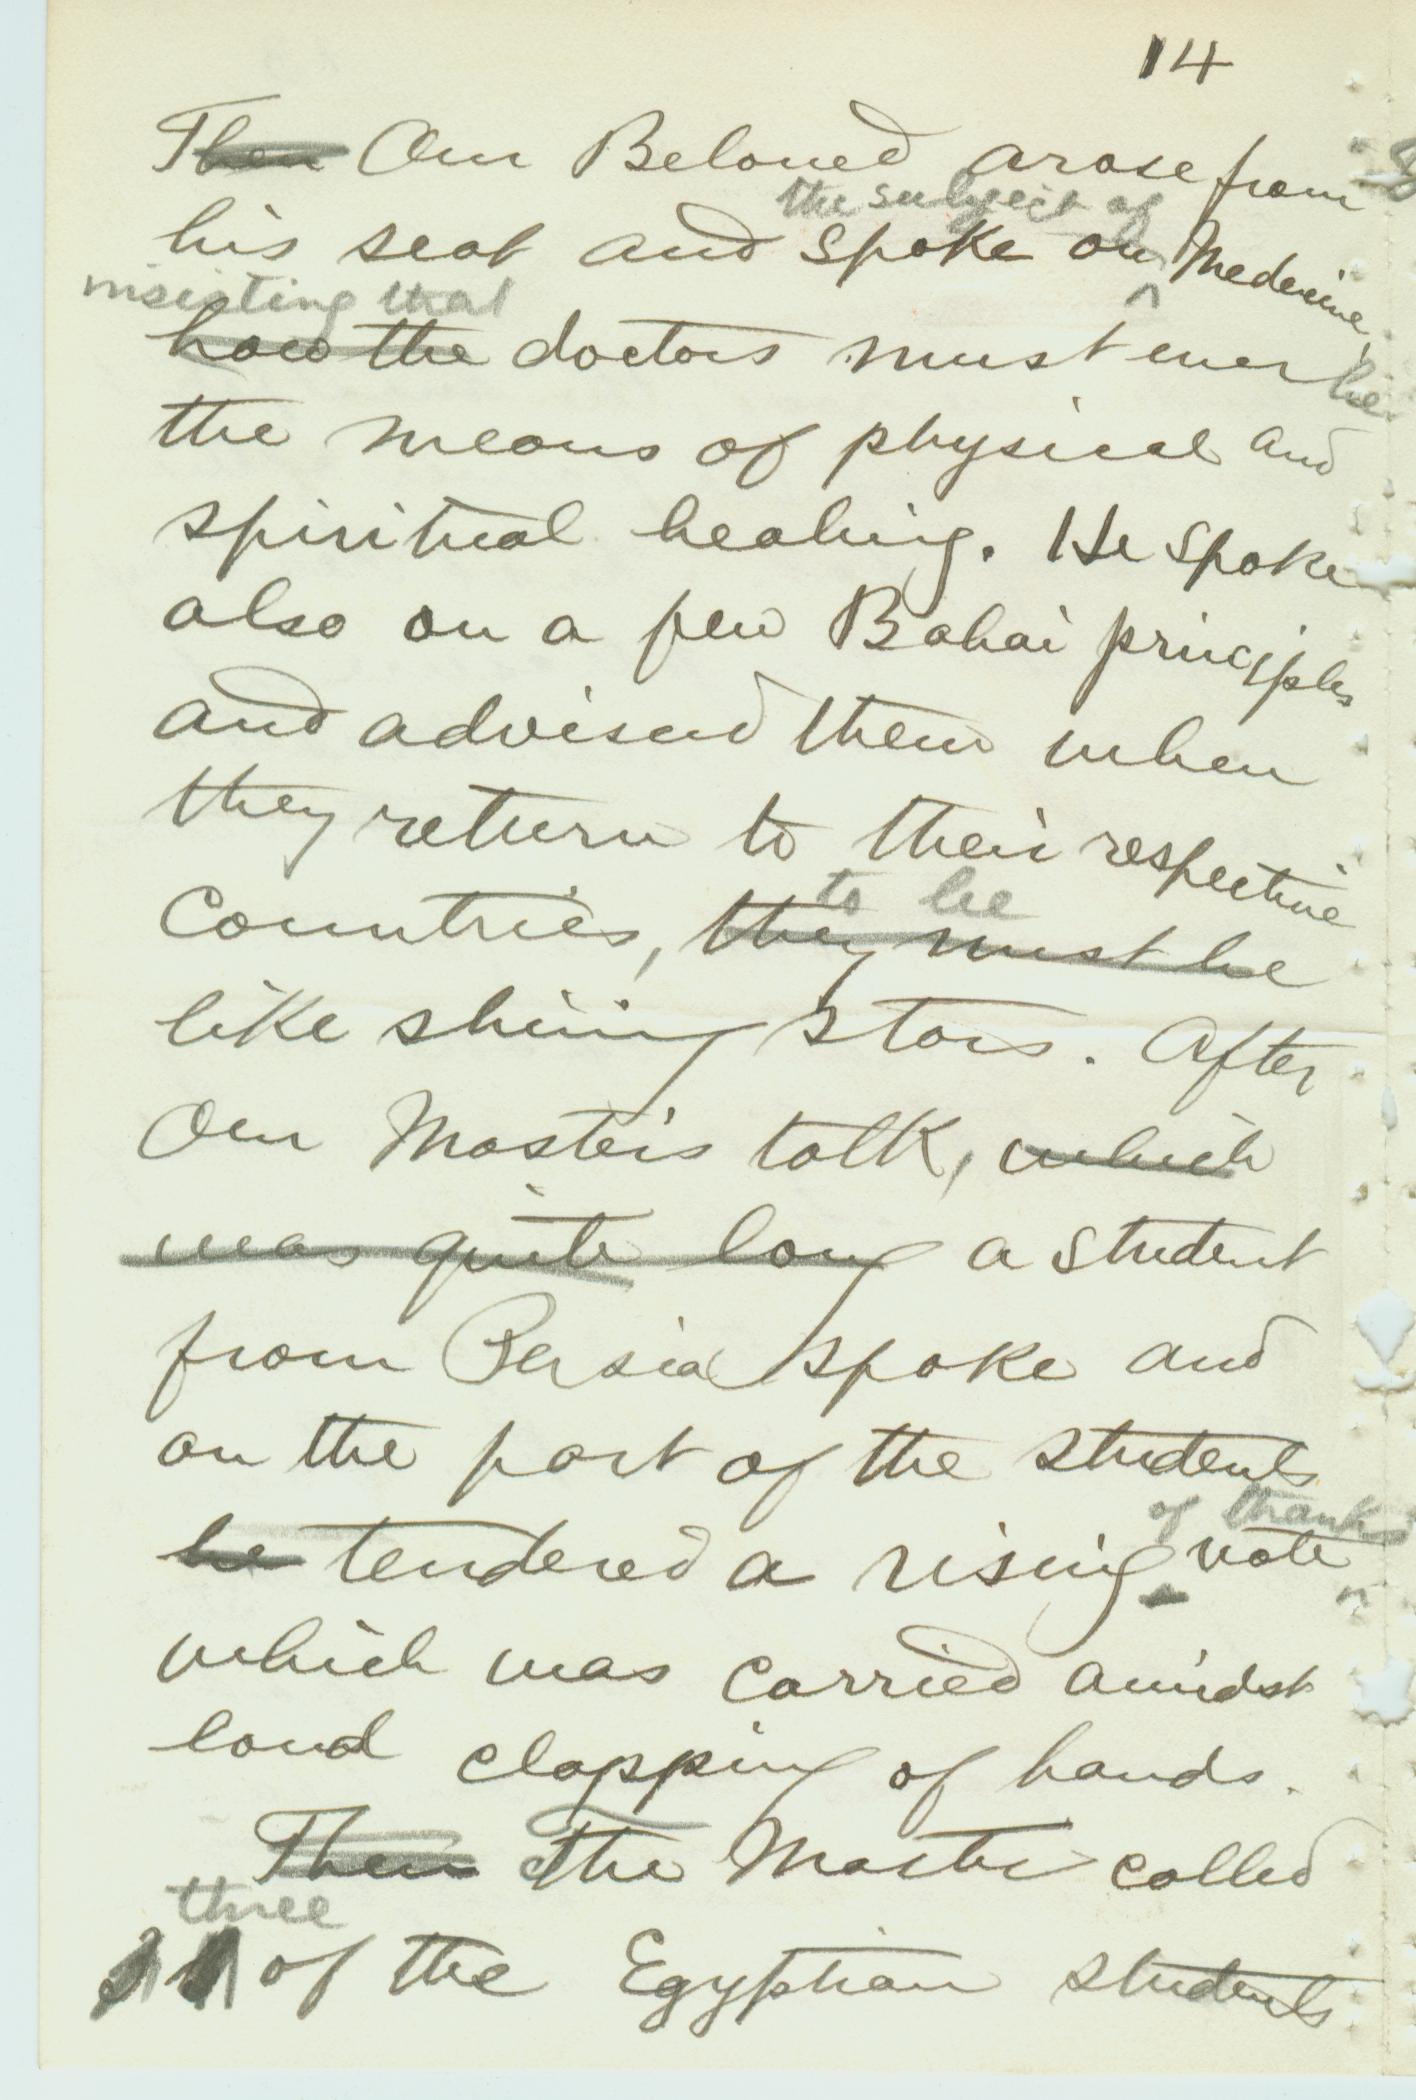 14
Then Our Beloved arose from
the subject of
his seat and spoke on Medecine,
insisting that
how the doctors must ever be
the means of physical and
spiritual healing. He spoke
also on a few Bahai principles
and advised them when
they return to their respective
to be
countries, they must be
like shining stars. After
Our Master's talk, which
was quite long a student
from Persia spoke and
on the part of the students
of thanks
he tendered a rising vote
which was carried amidst
loud clapping of hands.
Then The Master called
three
of the Egyptian students